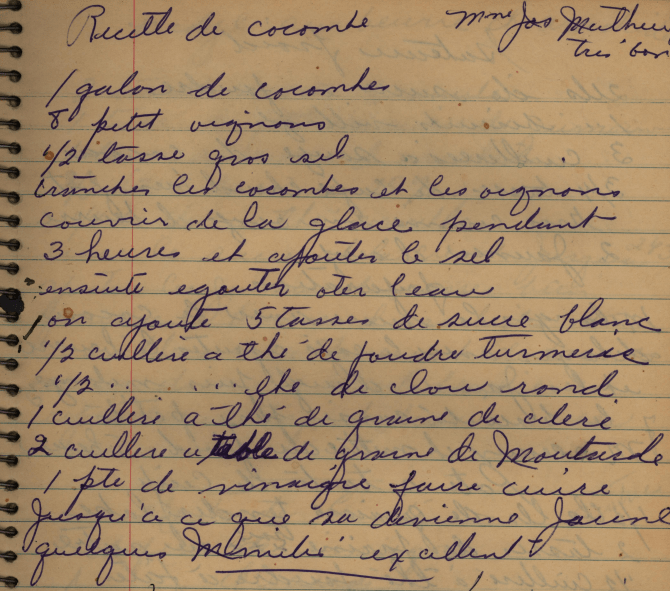 Recette de cocombe Mme Jos. Mathieu
très bon
1 galon de cocombes
8 petit oignons
1/2 tasse gros sel
trancher les cocombes et les oignons
couvrir de la glace pendant
3 heures et ajouter le sel
ensuite egouter oter l'eau
on ajoute 5 tasses de sucre blanc
1/2 cuillere a thé de poudre turmerse
1/2 .. ... thé de clou rond
1 cuillere a thé de graine de celeri
2 cuillere a table de graine de Moutarde
1 pte de vinaigre faire cuire
Jusqu'à ce que sa devienne Jaune
quelques excellent